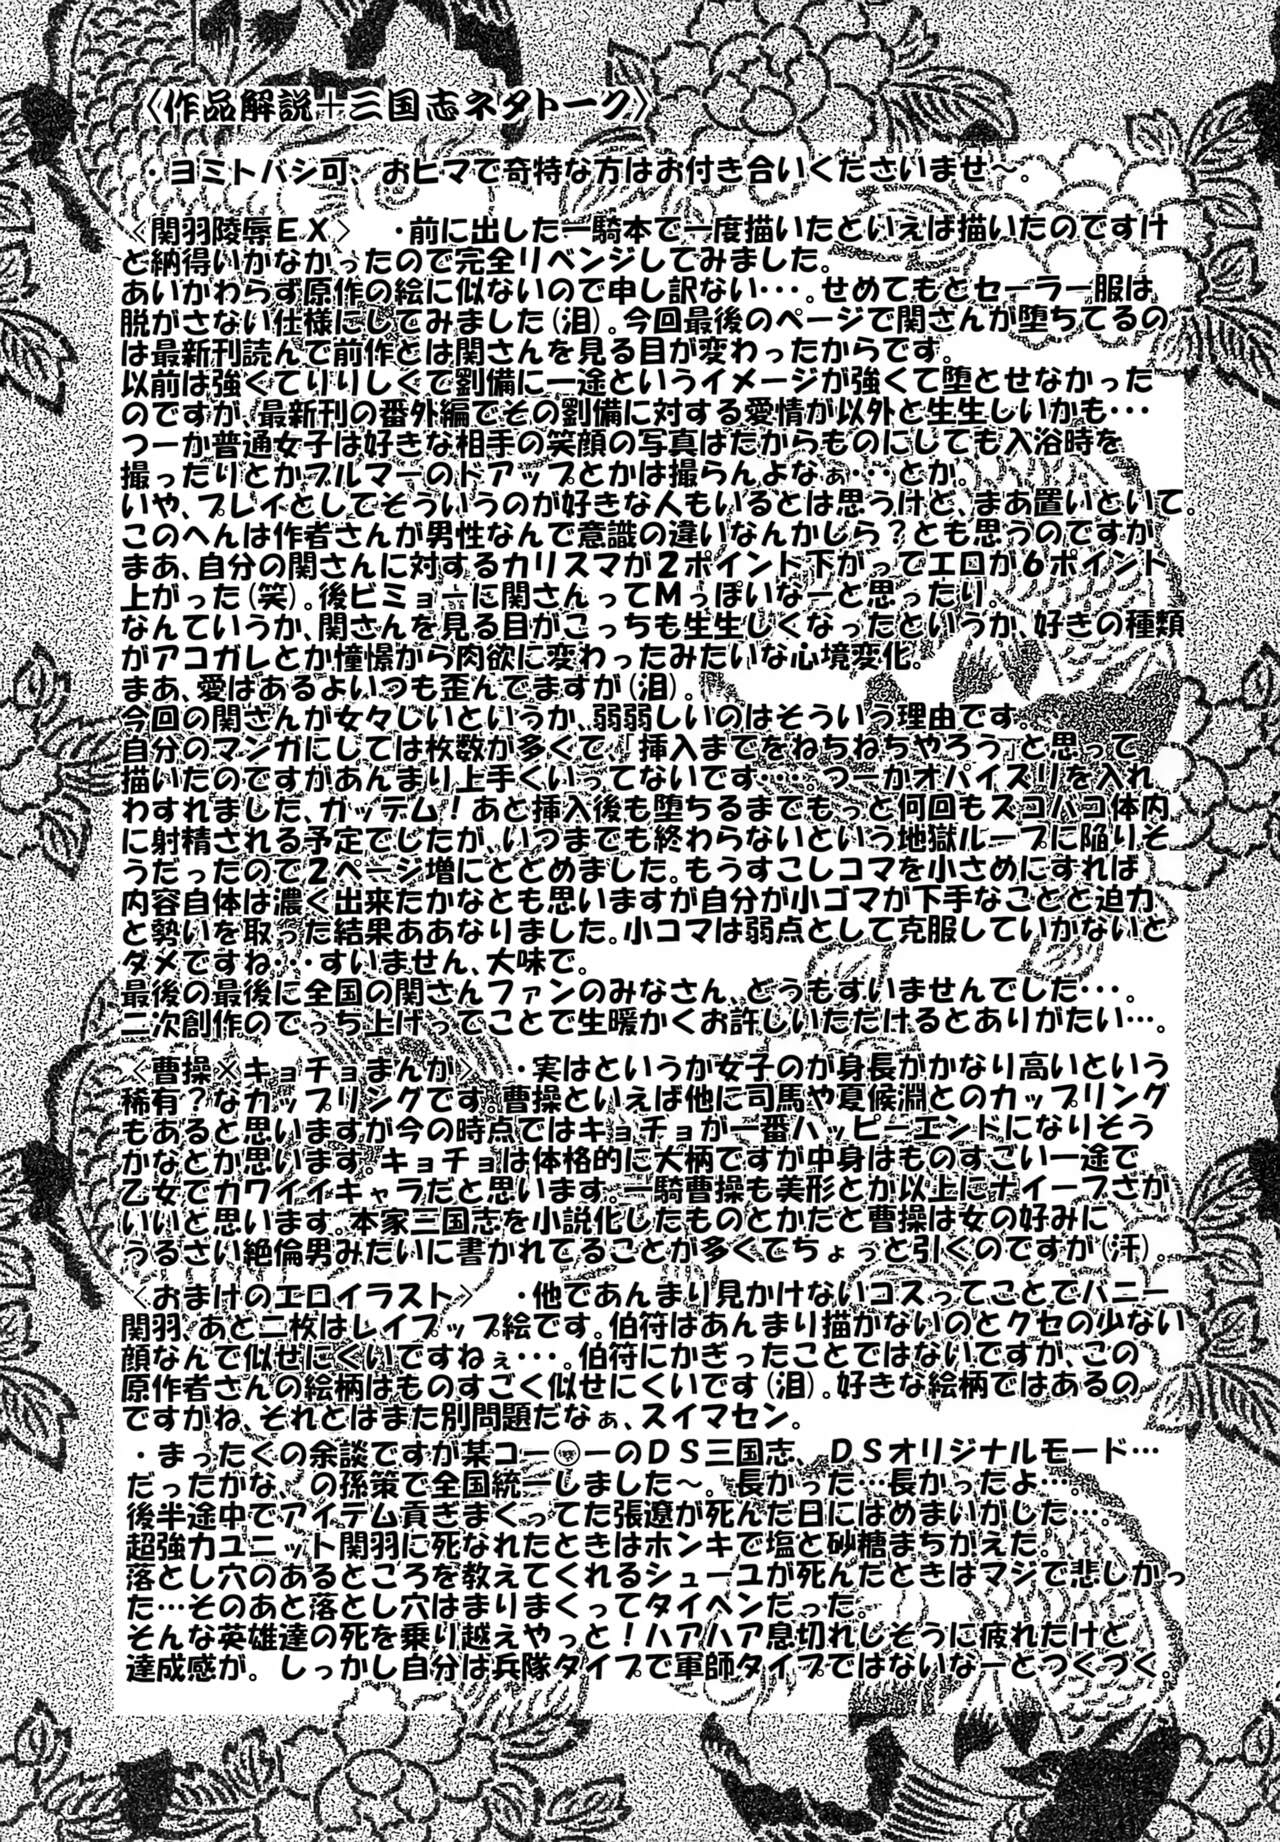 〈作品解説＋三国志ネタトーク〉
・ヨミトバシ可、おヒマで奇特な方はお付き合いくださいませ～。
〈関羽陵辱ＥＸ〉　・前に出した一騎本で一度描いたといえば描いたのですけ
ど納得いかなかったので完全リベンジしてみました。
あいかわらず原作の絵に似ないので申し訳ない・・・。せめてもとセーラー服は
脱がさない仕様にしてみました(泪)。今回最後のページで関さんが堕ちてるの
は最新刊読んで前作とは関さんを見る目が変わったからです。
以前は強くてりりしくて劉備に一途というイメージが強くて堕とせなかった
のですが、最新刊の番外編でその劉備に対する愛情が以外と生生しいかも・・・
つーか普通女子は好きな相手の笑顔の写真はたからものにしても入浴時を
撮ったりとかブルマーのドアップとかは撮らんよなぁ・・・とか。
いや、プレイとしてそういうのが好きな人もいるとは思うけど、まあ置いといて。
このへんは作者さんが男性なんで意識の違いなんかしら？とも思うのですが
まあ、自分の関さんに対するカリスマが２ポイント下がってエロが６ポイント
上がった(笑)。後ビミョーに関さんってＭっぽいなーと思ったり。
なんていうか、関さんを見る目がこっちも生生しくなったというか、好きの種類
がアコガレとか憧憬から肉欲に変わったみたいな心境変化。
まあ、愛はあるよいつも歪んでますが(泪)。
今回の関さんが女々しいというか、弱弱しいのはそういう理由です。
自分のマンガにしては枚数が多くて、「挿入までをねちねちやろう」と思って
描いたのですがあんまり上手くいってないです・・・・。つーかオパイズリを入れ
わすれました、ガッデム！あと挿入後も堕ちるまでもっと何回もズコバコ体内
に射精される予定でしたが、いつまでも終わらないという地獄ループに陥りそ
うだったので２ページ増にとどめました。もうすこしコマを小さめにすれば
内容自体は濃く出来たかなとも思いますが自分が小ゴマが下手なことと迫力
と勢いを取った結果ああなりました。小コマは弱点として克服していかないと
ダメですね・・・すいません、大味で。
最後の最後に全国の関さんファンのみなさん、どうもすいませんでした・・・。
二次創作のでっち上げってことで生暖かくお許しいただけるとありがたい・・・。
〈曹操×キョチョまんが〉　・実はというか女子のが身長がかなり高いという
稀有？なカップリングです。曹操といえば他に司馬や夏候淵とのカップリング
もあると思いますが今の時点ではキョチョが一番ハッピーエンドになりそう
かなとか思います。キョチョは体格的に大柄ですが中身はものすごい一途で
乙女でカワイイキャラだと思います。一騎曹操も美形とか以上にナイーブさが
いいと思います。本家三国志を小説化したものとかだと曹操は女の好みに
うるさい絶倫男みたいに書かれてることが多くてちょっと引くのですが(汗)。
〈おまけのエロイラスト〉　・他であんまり見かけないコスってことでバニー
関羽、あと二枚はレイプップ絵です。伯符はあんまり描かないのとクセの少ない
顔なんで似せにくいですねぇ・・・。伯符にかぎったことではないですが、この
原作者さんの絵柄はものすごく似せにくいです(泪)。好きな絵柄ではあるの
ですがね、それとはまた別問題だなぁ、スイマセン。
・まったくの余談ですが某コー ーのＤＳ三国志、ＤＳオリジナルモード・・・
だったかな、の孫策で全国統一しました～。長かった・・・長かったよ・・・。
後半途中でアイテム貢ぎまくってた張遼が死んだ日にはめまいがした・・・。
超強力ユニット関羽に死なれたときはホンキで塩と砂糖まちがえた。
落とし穴のあるところを教えてくれるシューユが死んだときはマジで悲しかっ
た・・・そのあと落とし穴はまりまくってタイヘンだった。
そんな英雄達の死を乗り越えやっと！ハアハア息切れしそうに疲れたけど
達成感が。しっかし自分は兵隊タイプで軍師タイプではないなーとつくづく。